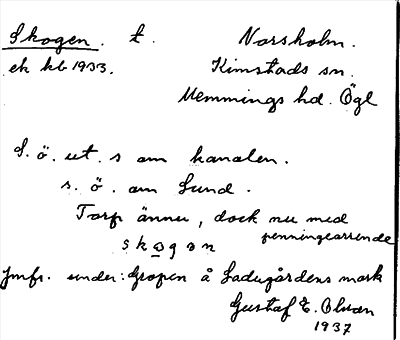 Skogen. t. Norsholm.
ek kb 1933. Kimstads sn.
Memmings hd. Ögl
S. ö. ut. s om kanalen.
s. ö. om Lund.
Torp ännu, dock nu med
penningearrende
skogən
Jmfr. under: Gropen å Ladugårdens mark
Gustaf E. Olsson
1937